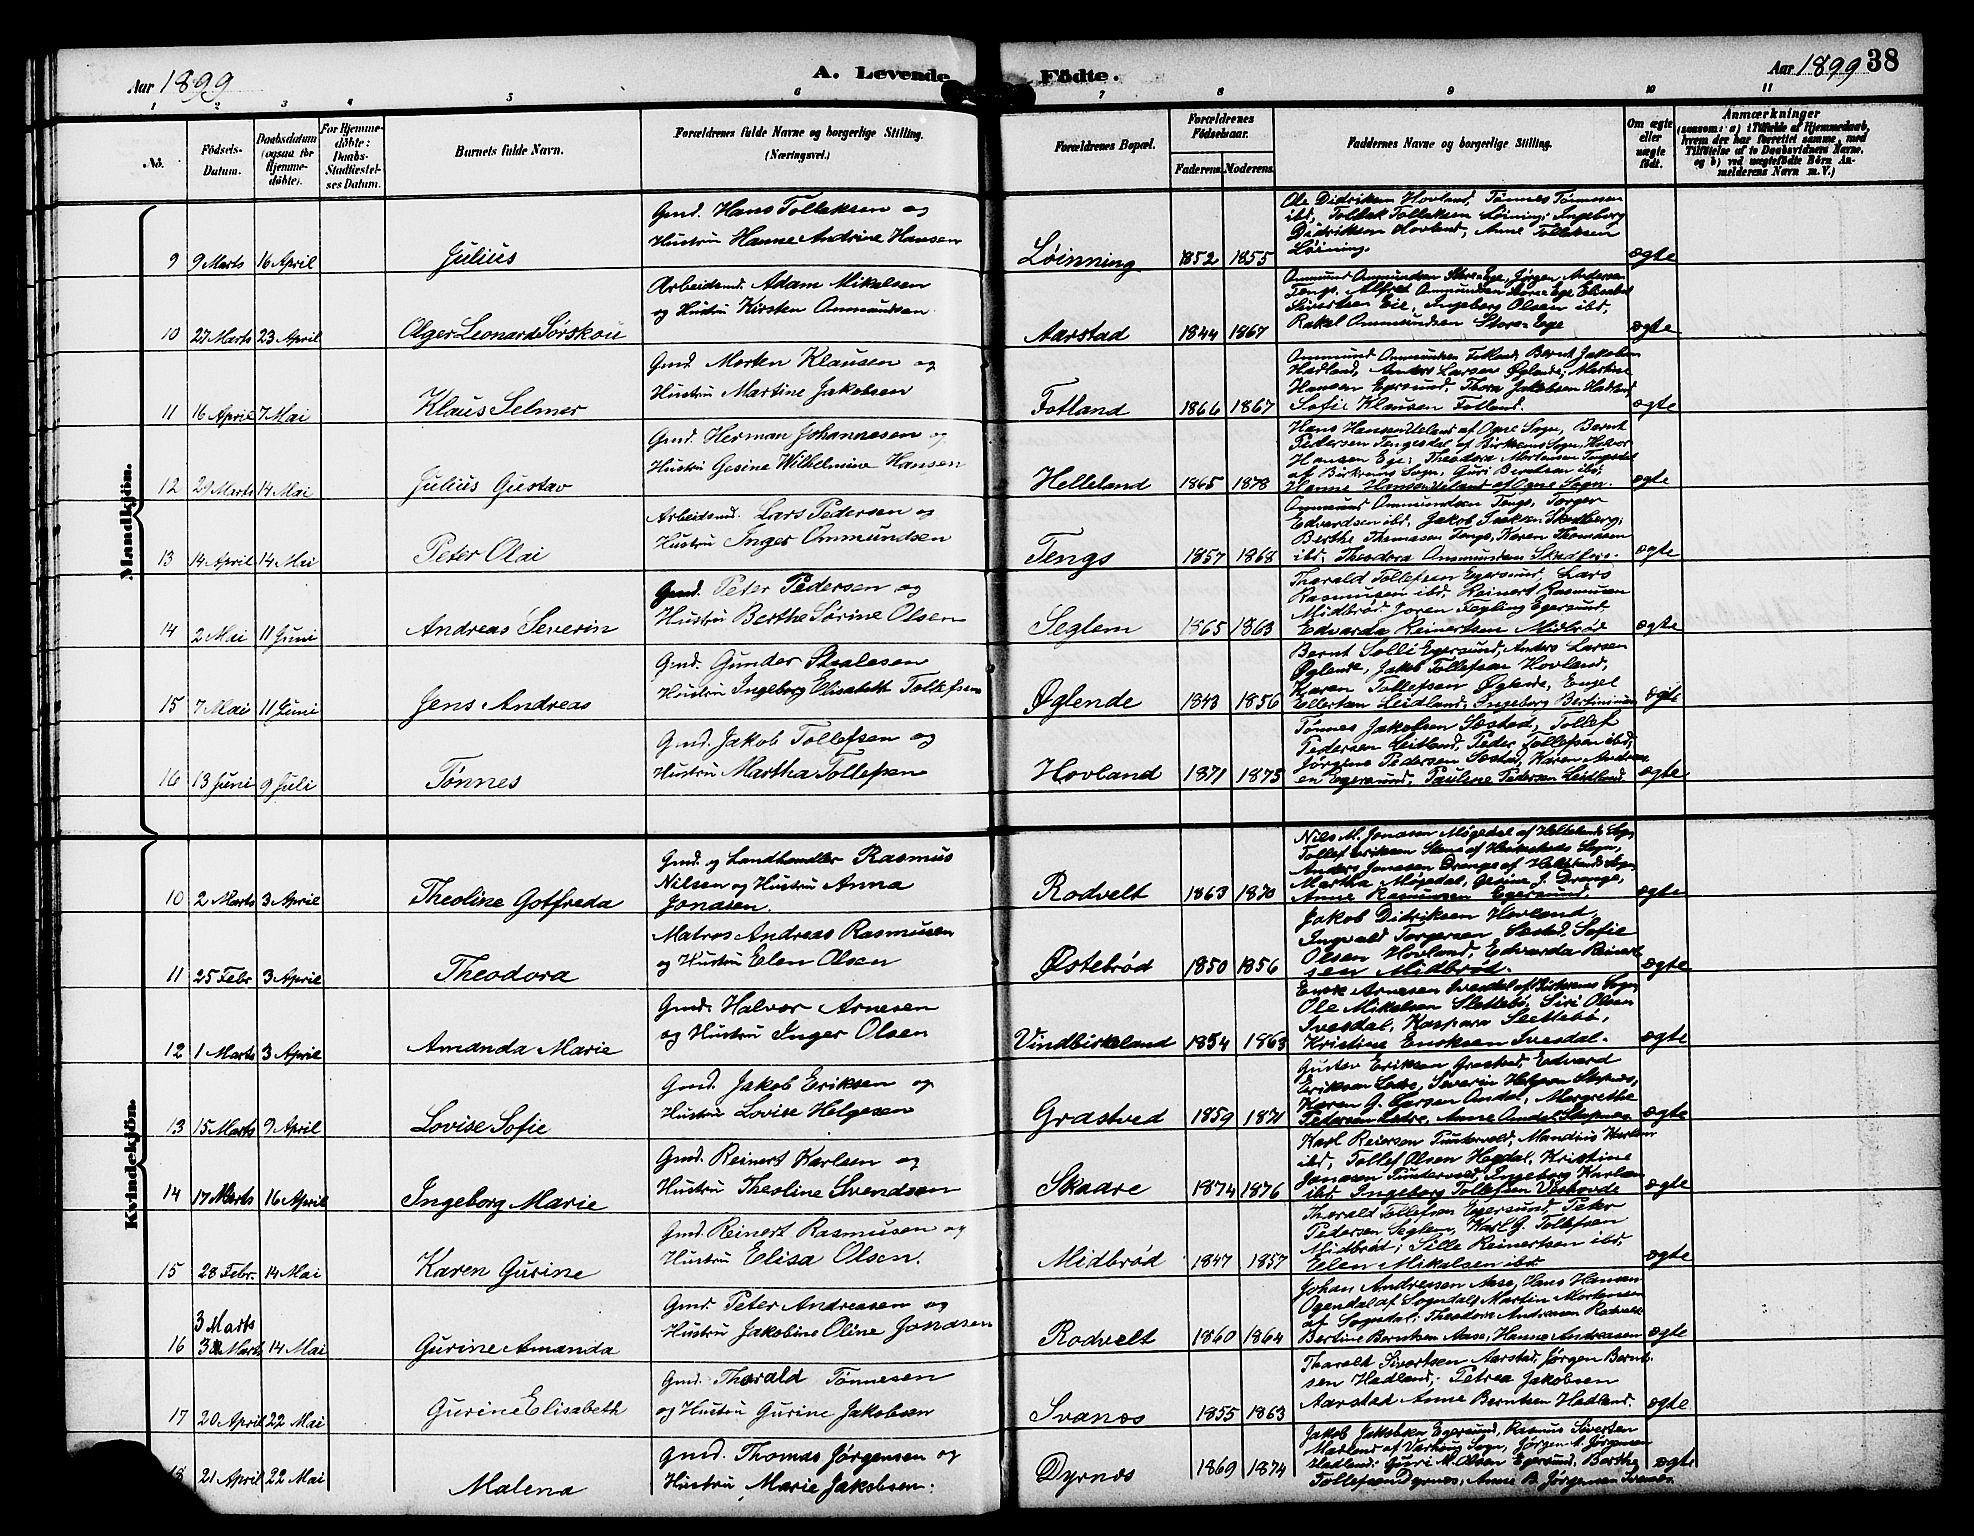 Aar 1899
A. Levende Födte.
Aar 1899 38
1 2 3 4 5 6 7 8 9 10 11
No.
Födsels-
Datum.
Daabsdatum
(ogsaa for
Hjemme-
döbte).
For Hjemme-
döbte:
Daabs-
Stadfæstel-
ses Datum.
Barnets fulde Navn.
Forældrenes fulde Navne og borgerlige Stilling.
(Næringsvei.)
Forældrenes Bopæl.
Forældrenes
Födselsaar.
Faderens. Moderens.
Faddernes Navne og borgerlige Stilling.
Om ægte
eller
uægte
födt.
Anmærkninger
(saasom: a) i Tilfælde af Hjemmedaab,
hvem der har forrettet samme, med
Tilföielse af to Daabsvidners Navne.
og b) ved uægtefödte Börn An-
melderens Navn m. V.)
Mandkjön.
9 9 Marts 16 April Julius
Gmd. Hans Tolleksen og
Hustru Hanne Andrine Hansen
Løinning 1852 1855
Ole Didriksen Hovland, Tønnes Tønnesen
ibd, Tollak Tollaksen Løining; Ingeborg
Didriksen Hovland, Anne Tollaksen
Løining.
ægte
10 27 Marts 23 April Olger Leonard Sørskou
Arbeidsmd. Adam Mikalsen
og Hustru Kirsten Ommundsen
Aarstad 1844 1867
Ommund Ommundsen Store-Ege, Jørgen Andersen
Tengs, Alfred Ommundsen Store-Ege Elisabet
Sivertsen Eie, Ingeborg Olsen ibd,
Rakel Ommundsen Store-Ege
ægte
11 16 April 7 Mai Klaus Selmer
Gmd. Morten Klausen og
Hustru Martine Jakobsen
Fotland 1866 1867
Ommund Ommundsen Fotland, Bernt Jakobsen
Hadland, Anders Larsen Øglende, Martine
Hansen Egersund, Thora Jakobsen Hadland,
Sofie Klausen Fotland.
ægte
12 27 Marts 14 Mai Julius Gustav
Gmd. Herman Johannesen og
Hustru Gesine Wilhelmine Hansen
Helleland 1865 1878
Hans Hansen Ueland af Ogne Sogn, Bernt
Pedersen Tengesdal af Birkrems Sogn,
Hansen Ege; Theodora Mortensen Tengesdal
af Birkrems Sogn, Guri Berntsen ibd;
Hanne Hansen Ueland af Ogne Sogn.
ægte
13 14 April 14 Mai Peter Olai
Arbeidsmd. Lars Pedersen og
Hustru Inger Ommundsen
Tengs 1857 1868
Ommund Ommundsen Tengs, Torger
Edvardsen ibd, Jakob Isaksen
Berthe Thomasen Tengs, Karen Thomasen
ibd; Theodora Ommundsen
ægte
14 2 Mai 11 Juni Andreas Severin
Gmd. Peter Pedersen og
Hustru Berthe Sørine Olsen
Seglem 1865 1863
Tharald Tollefsen Egersund, Lars
Rasmusen ibd, Reinert Rasmusen
Midbrød, Joren Egersund,
Edvarda Reinertsen Midbrød
ægte
15 7 Mai 11 Juni Jens Andreas
Gmd. Gunder Staalesen
Hustru Ingeborg Elisabeth Tollefsen
Øglende 1843 1856
Bernt Solli Egersund, Anders Larsen
Øglende, Jakob Tollefsen Hovland,
Karen Tollefsen Øglende, Engel
Ellertsen Leidland, Ingeborg
ægte
16 13 Juni 9 Juli Tønnes
Gmd. Jakob Tollefsen og
Hustru Martha Tollefsen
Hovland 1871 1875
Tønnes Jakobsen Sæstad, Tollef
Pedersen Leitland, Peder Tollefsen ibd;
Jørgine Pedersen Sæstad, Karen Andreas-
en Egersund, Pauline Pedersen Leidland
ægte
Kvindekjön.
10 2 Marts 3 April Theoline Gotfreda
Gmd. og Landhandler Rasmus
Nilsen og Hustru Anna
Jonasen.
Rodvelt 1863 1870
Nils M. Jonasen Møgedal af Hellelands Sogn
Tollef Eriksen af Heskestads Sogn,
Anders Jonasen Drange af Hellelands Sogn
Martha Møgedal, Gesine J. Drange,
Anne Rasmussen Egersund.
ægte
11 25 Febr 3 April Theodora
Matros Andreas Rasmusen
og Hustru Elen Olsen
Østebrød 1850 1856
Jakob Didriksen Hovland,
Ingvald Torgersen Sæstd, Sofie
Olsen Hovland, Edvarda Reinert-
sen Midbrød.
ægte
12 1 Marts 3 April Amanda Marie
Gmd. Halvor Arnesen
og Hustru Inger Olsen
Vindbirkeland 1854 1863
Enok Arnesen Ivesdal af Birkrems Sogn,
Ole Mikelsen Slettebø, Siri Olsen
Ivesdal, Kaspara Slettebø,
Kristine Enoksen Ivesdal.
ægte
13 15 Marts 9 April Lovise Sofie
Gmd. Jakob Eriksen og
Hustru Lovise Helgesen
Grastved 1859 1871
Gustav Eriksen Grastved, Edvard
Eriksen Ledre, Severin Helgesen
Karen G. Larsen Omdal, Margrethe
Pedersen Ledre, Anne Omdal
ægte
14 17 Marts 16 April Ingeborg Marie
Gmd. Reinert Karlsen og
Hustru Theoline Svendsen
Skaare 1874 1876
Karl Reiersen Tundervold, Mandius Karlsen
ibd, Tollef Olsen Hegdal, Kristine
Jonasen Tundervold, Ingeborg Karlsen
ibd Ingeborg Tollefsen
ægte
15 28 Febr. 14 Mai Karen Gurine
Gmd. Reinert Rasmusen og
Hustru Elisa Olsen.
Midbrød 1847 1857
Tharald Tollefsen Egersund, Peter
Pedersen Seglem, Karl G. Tollefsen
Midbrød; Sille Reinertsen ibd,
Ellen Mikalsen ibd.
ægte
3 Marts
16 14 Mai Gurine Amanda
Gmd. Peter Andreasen og
Hustru Jakobine Oline Jonasen
Rodvelt 1860 1864
Johan Andreasen Aase, Hans Hansen
Ogendal af Sogndal, Martin Mortensen
af Sogndal; Theodora Andreasen Rodvelt
Bertine Berntsen Aase, Hanne Andreasen
ægte
17 20 April 22 Mai Gurine Elisabeth
Gmd. Tharald Tønnesen
og Hustru Gurine Jakobsen
Svanæs 1855 1863
Tharald Sivertsen Aarstad, Jørgen Bernt-
sen Hadland; Petrea Jakobsen
Aarstad Anne Berntsen Hadland.
ægte
18 21 April 22 Mai Malena
Gmd. Thomas Jørgensen og
Hustru Marie Jakobsen.
Dyrnæs 1869 1874
Jakob Jakobsen Egersund, Rasmus Sivertsen
af Varhoug Sogn, Jørgen A. Jørgensen
Hadland; Guri M. Olsen Egersund, Berthe
Tollefsen Dyrnæs, Anne B. Jørgensen Svanæs
ægte